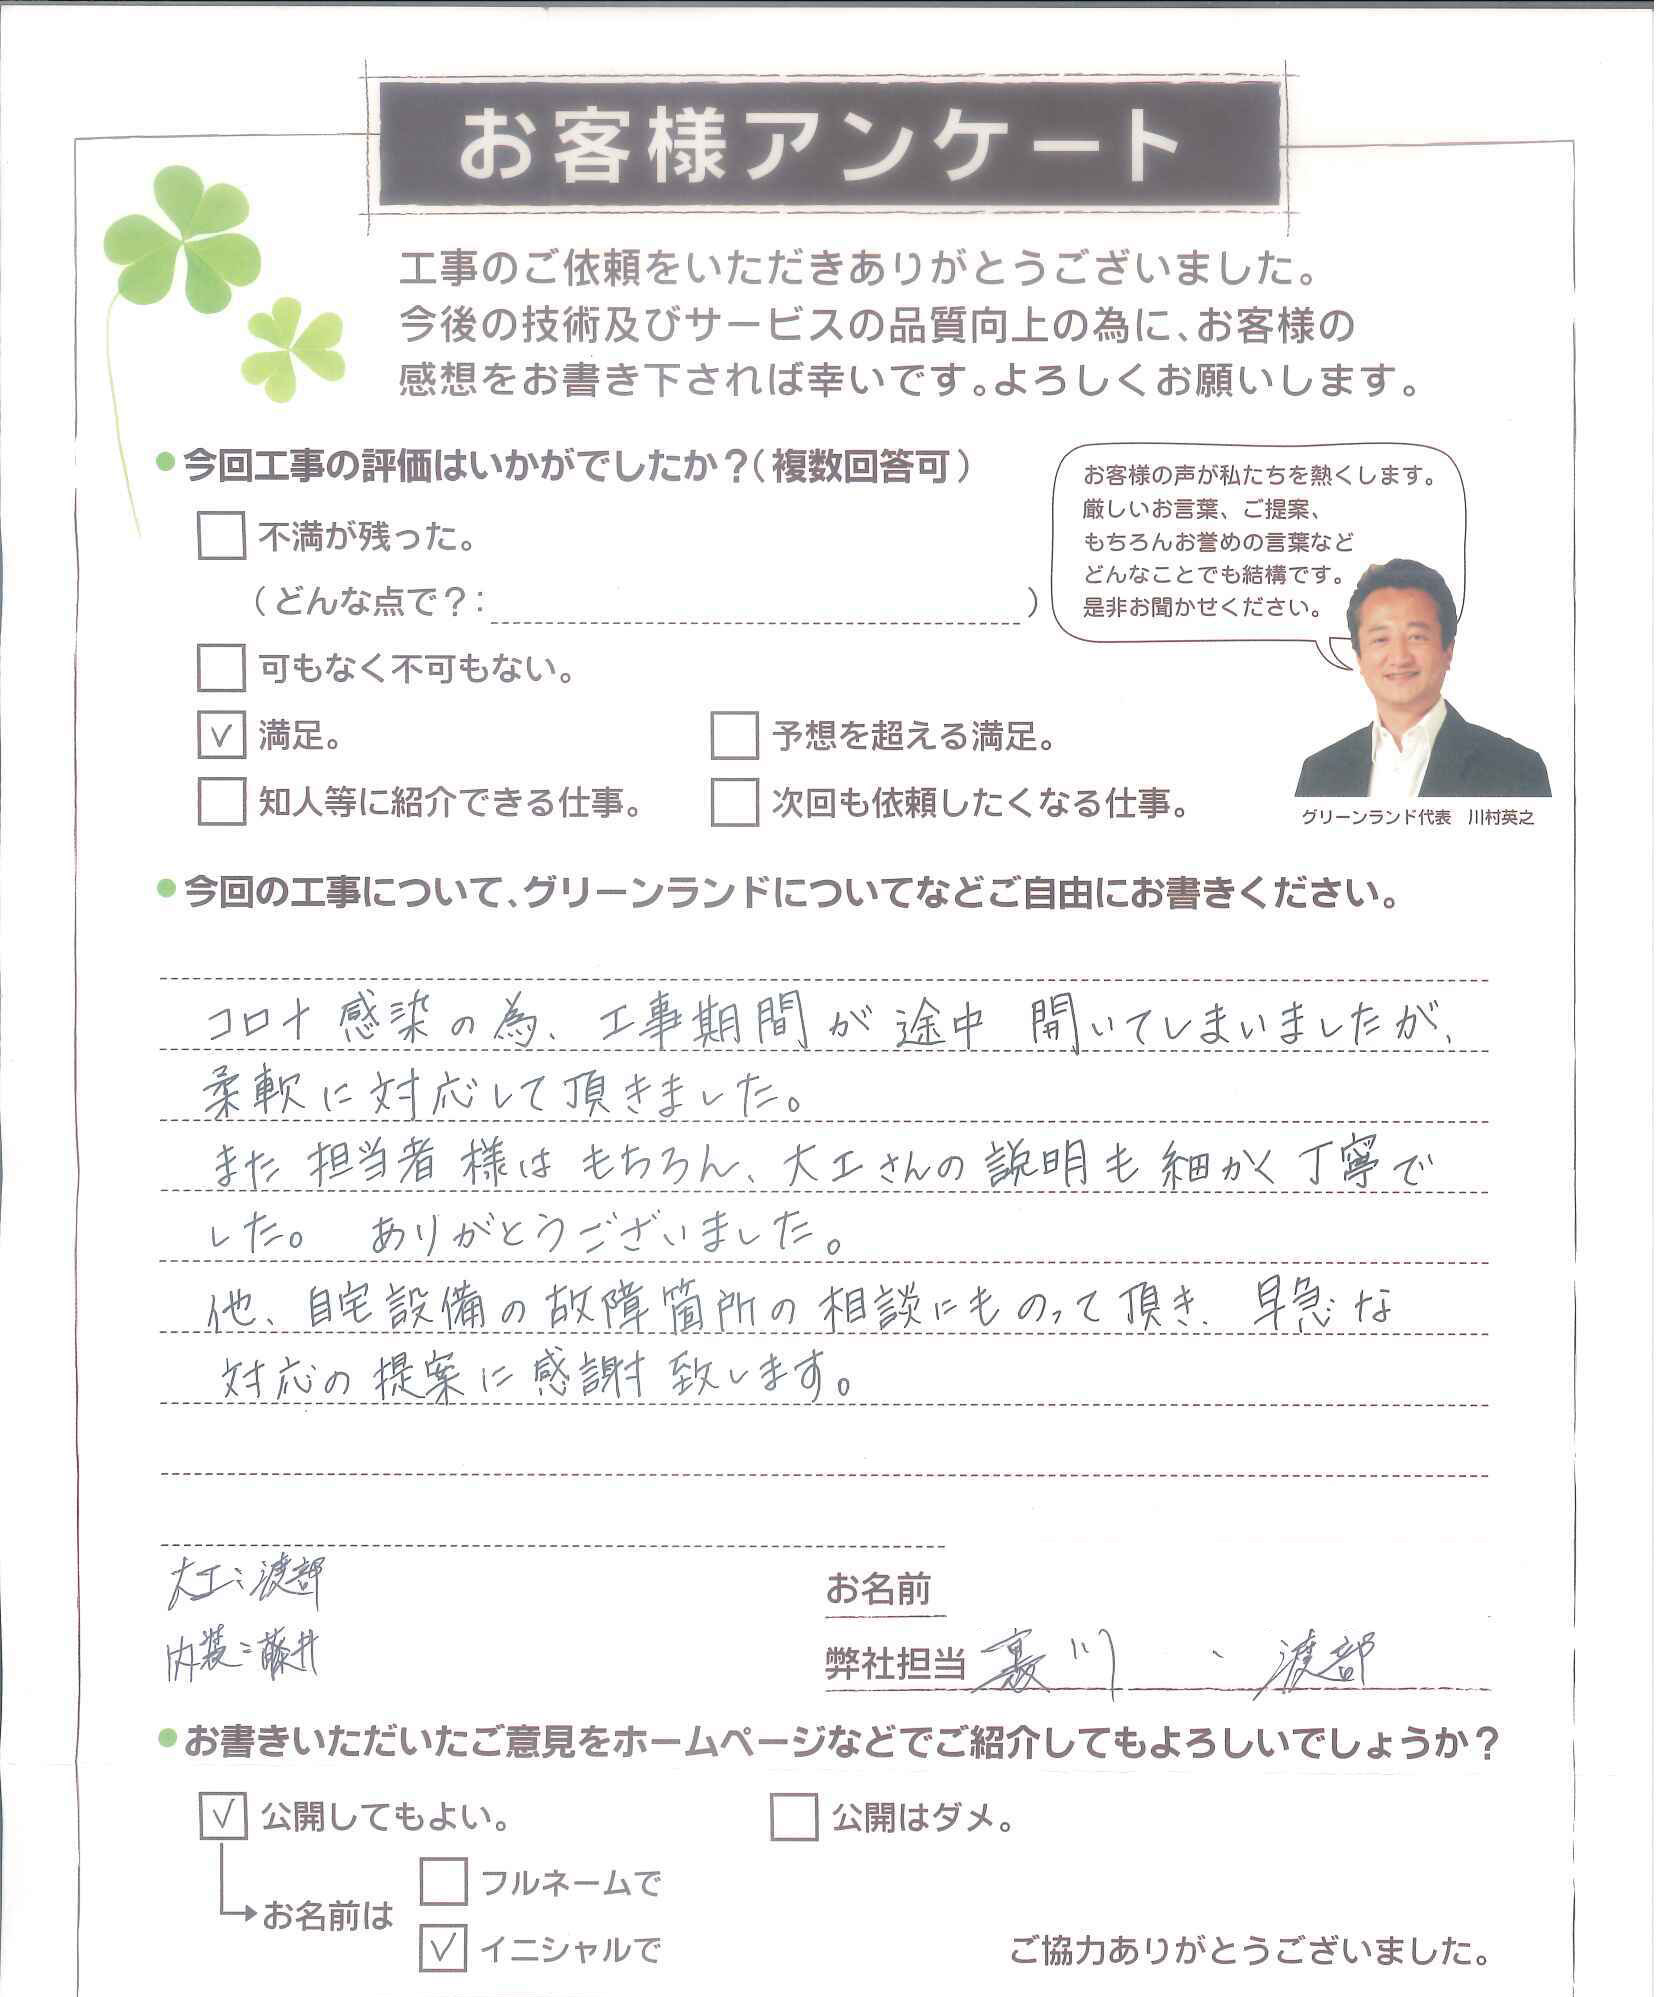 お客様アンケート
工事のご依頼をいただきありがとうございました。
今後の技術及びサービスの品質向上の為に、お客様の
感想をお書き下されば幸いです。よろしくお願いします。
●今回工事の評価はいかがでしたか？(複数回答可)
不満が残った。
(どんな点で？: )
可もなく不可もない。
✓ 満足。 予想を超える満足。
知人等に紹介できる仕事。 次回も依頼したくなる仕事。
お客様の声が私たちを熱くします。
厳しいお言葉、ご提案、
もちろんお誉めの言葉など
どんなことでも結構です。
是非お聞かせください。
グリーンランド代表　川村英之
●今回の工事について、グリーンランドについてなどご自由にお書きください。
コロナ感染の為、工事期間が途中 開いてしまいましたが、
柔軟に対応して頂きました。
また担当者様はもちろん、大工さんの説明も細かく丁寧で
した。 ありがとうございました。
他、自宅設備の故障箇所の相談にものって頂き、早急な
対応の提案に感謝致します。
大工:渡部
内装:藤井
お名前
弊社担当 裏川、渡部
●お書きいただいたご意見をホームページなどでご紹介してもよろしいでしょうか？
✓ 公開してもよい。 公開はダメ。
お名前は
フルネームで
✓ イニシャルで
ご協力ありがとうございました。